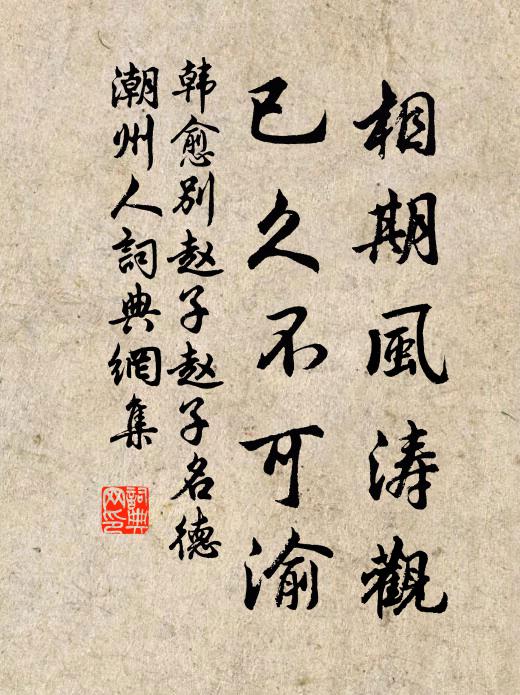 相期風涛觀
已久不可渝
韩愈別赵子赵子名德
潮州人詞典網集
詞典网印